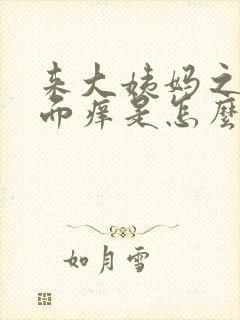 来大姨妈之
而痒是怎麽
如月雪